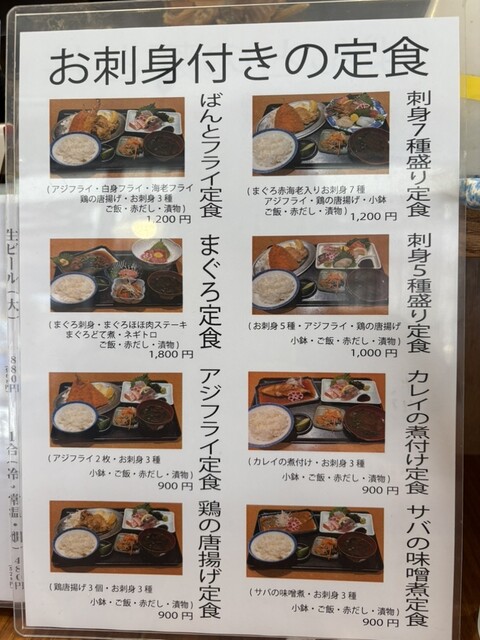 お刺身付きの定食
刺身7種盛り定食
(まぐろ赤海老入りお刺身7種
アジフライ・鶏の唐揚げ・小鉢
ご飯・赤だし・漬物)
1,200円
ばんとフライ定食
(アジフライ・白身フライ・海老フライ
鶏の唐揚げ・お刺身3種
ご飯・赤だし・漬物)
1,200円
刺身5種盛り定食
(お刺身5種・アジフライ・鶏の唐揚げ
小鉢・ご飯・赤だし・漬物)
1,000円
まぐろ定食
(まぐろ刺身・まぐろほほ肉ステーキ
まぐろどて煮・ネギトロ
ご飯・赤だし・漬物)
1,800円
カレイの煮付け定食
(カレイの煮付け・お刺身3種
小鉢・ご飯・赤だし・漬物)
900円
アジフライ定食
(アジフライ2枚・お刺身3種
小鉢・ご飯・赤だし・漬物)
900円
サバの味噌煮定食
(サバの味噌煮・お刺身3種
小鉢・ご飯・赤だし・漬物)
900円
鶏の唐揚げ定食
(鶏唐揚げ3個・お刺身3種
小鉢・ご飯・赤だし・漬物)
900円
生ビール(大)
880円
1合(冷・常温・燗)
480円